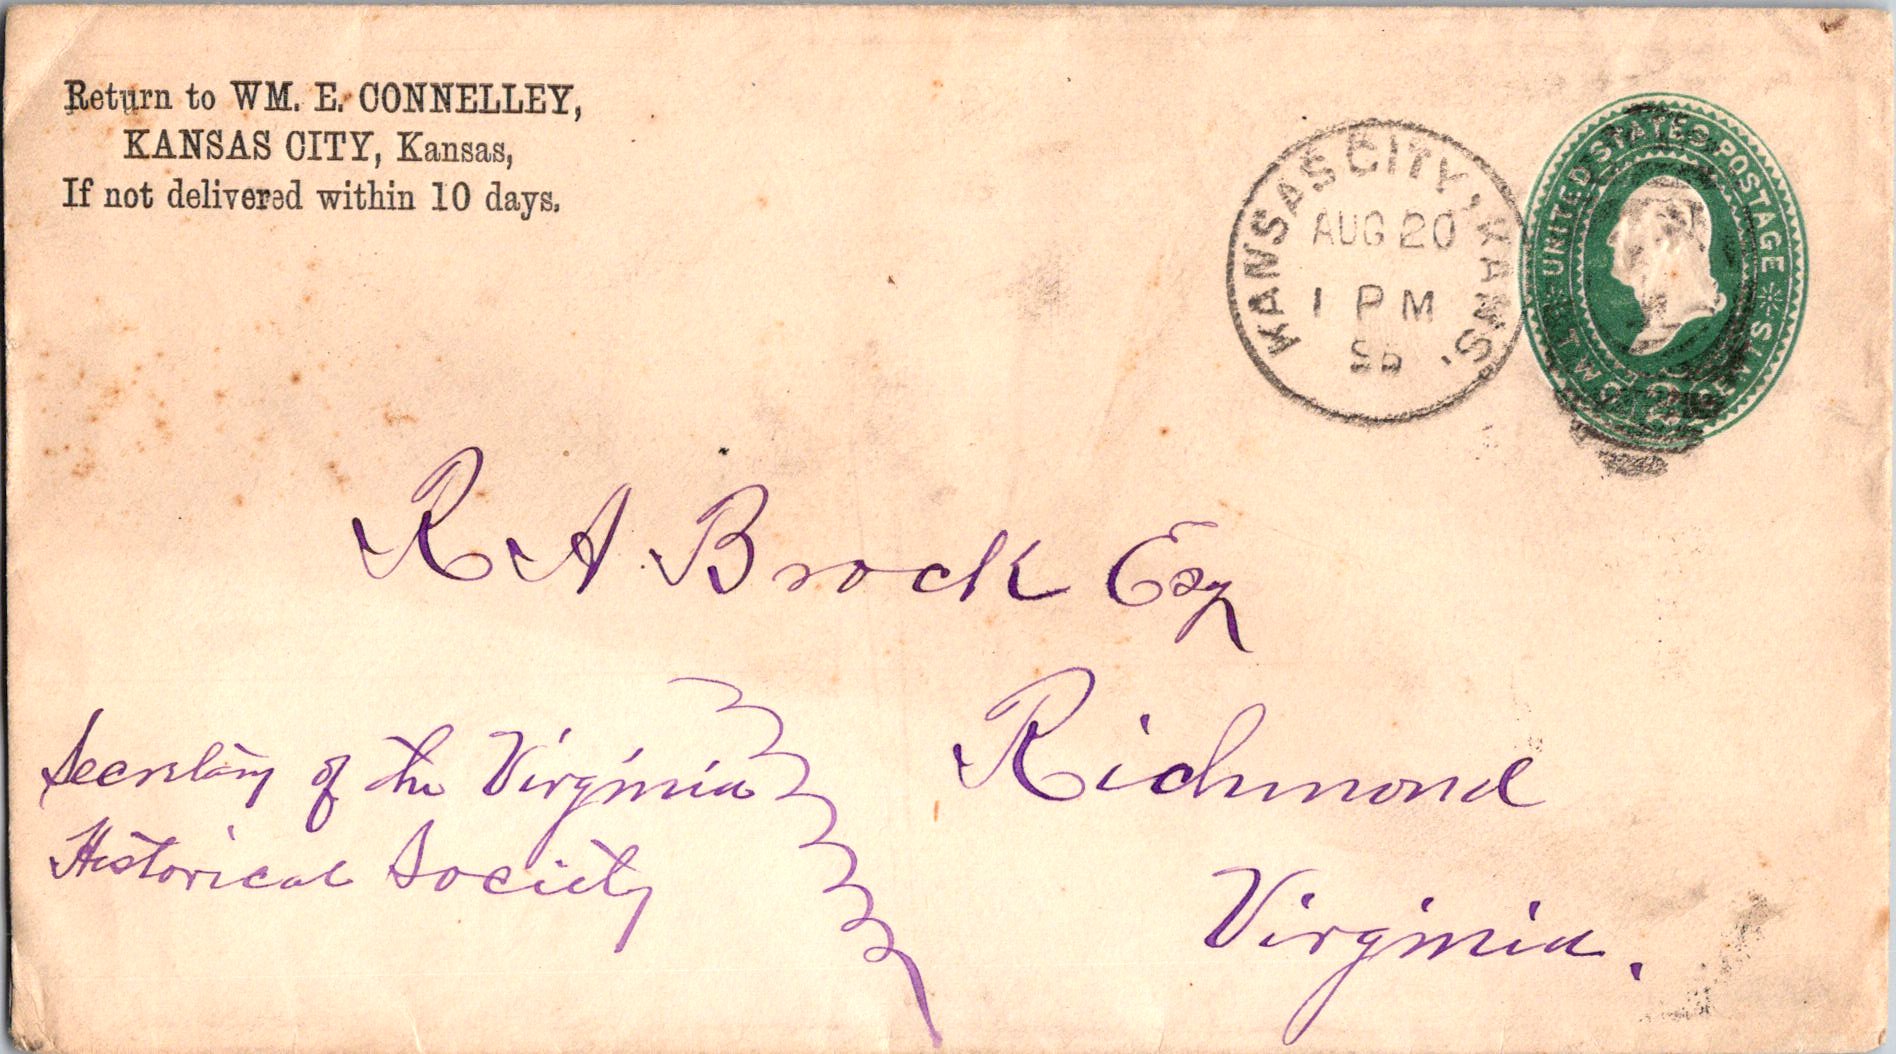 Return to WM. E. CONNELLEY,
KANSAS CITY, Kansas,
If not delivered within 10 days.
KANSAS CITY, KANS.
AUG 20
1 PM
UNITED STATES POSTAGE
TWO CENTS
2
R A Brock Esq
Richmond
Virginia.
Secretary of the Virginia
Historical Society